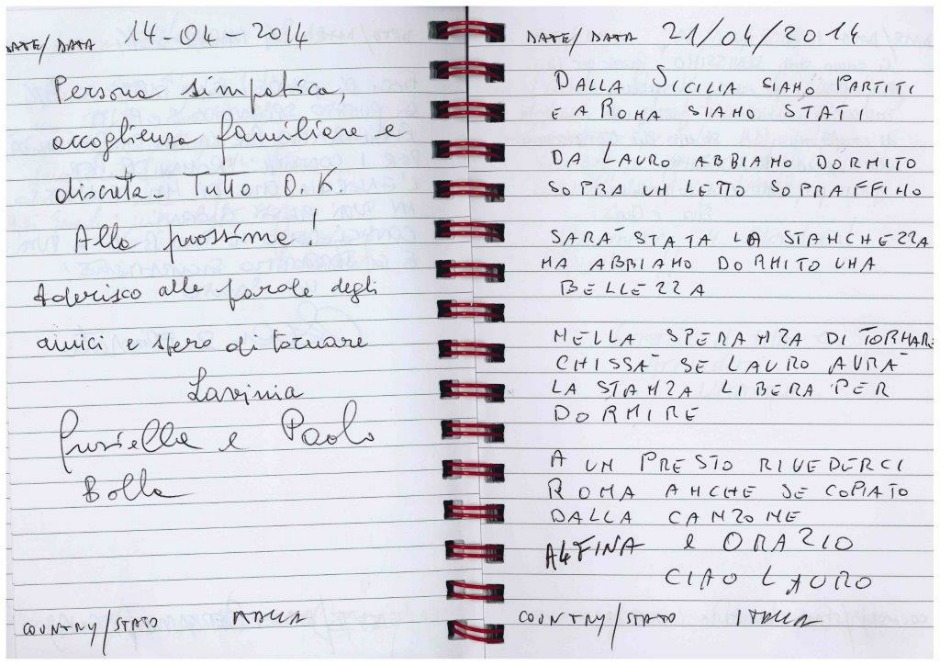 DATE/DATA 14-04-2014
Persona simpatica,
accoglienza familiare e
discreta. Tutto O.K.
Alla prossima!
Aderisco alle parole degli
amici e spero di tornare
Lavinia
e Paolo
Bolla
COUNTRY/STATO ITALIA
DATE/DATA 21/04/2014
DALLA SICILIA SIAMO PARTITI
E A ROMA SIAMO STATI
DA LAURO ABBIAMO DORMITO
SOPRA UN LETTO SOPRAFFINO
SARA' STATA LA STANCHEZZA
MA ABBIAMO DORMITO UNA
BELLEZZA
NELLA SPERANZA DI TORNARE
CHISSA' SE LAURO AVRA'
LA STANZA LIBERA PER
DORMIRE
A UN PRESTO RIVEDERCI
ROMA ANCHE SE COPIATO
DALLA CANZONE
ALFINA e ORAZIO
CIAO LAURO
COUNTRY/STATO ITALIA